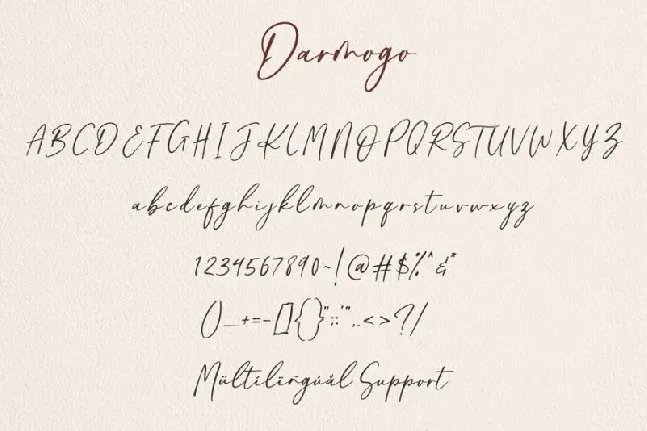 Darmogo
ABCDEFGHIJKLMNOPQRSTUVWXYZ
abcdefghijklmnopqrstuvwxyz
1234567890~!@#$%^&*
()_+=-[]{}":;'",.<>?/
Múltilingüál Support